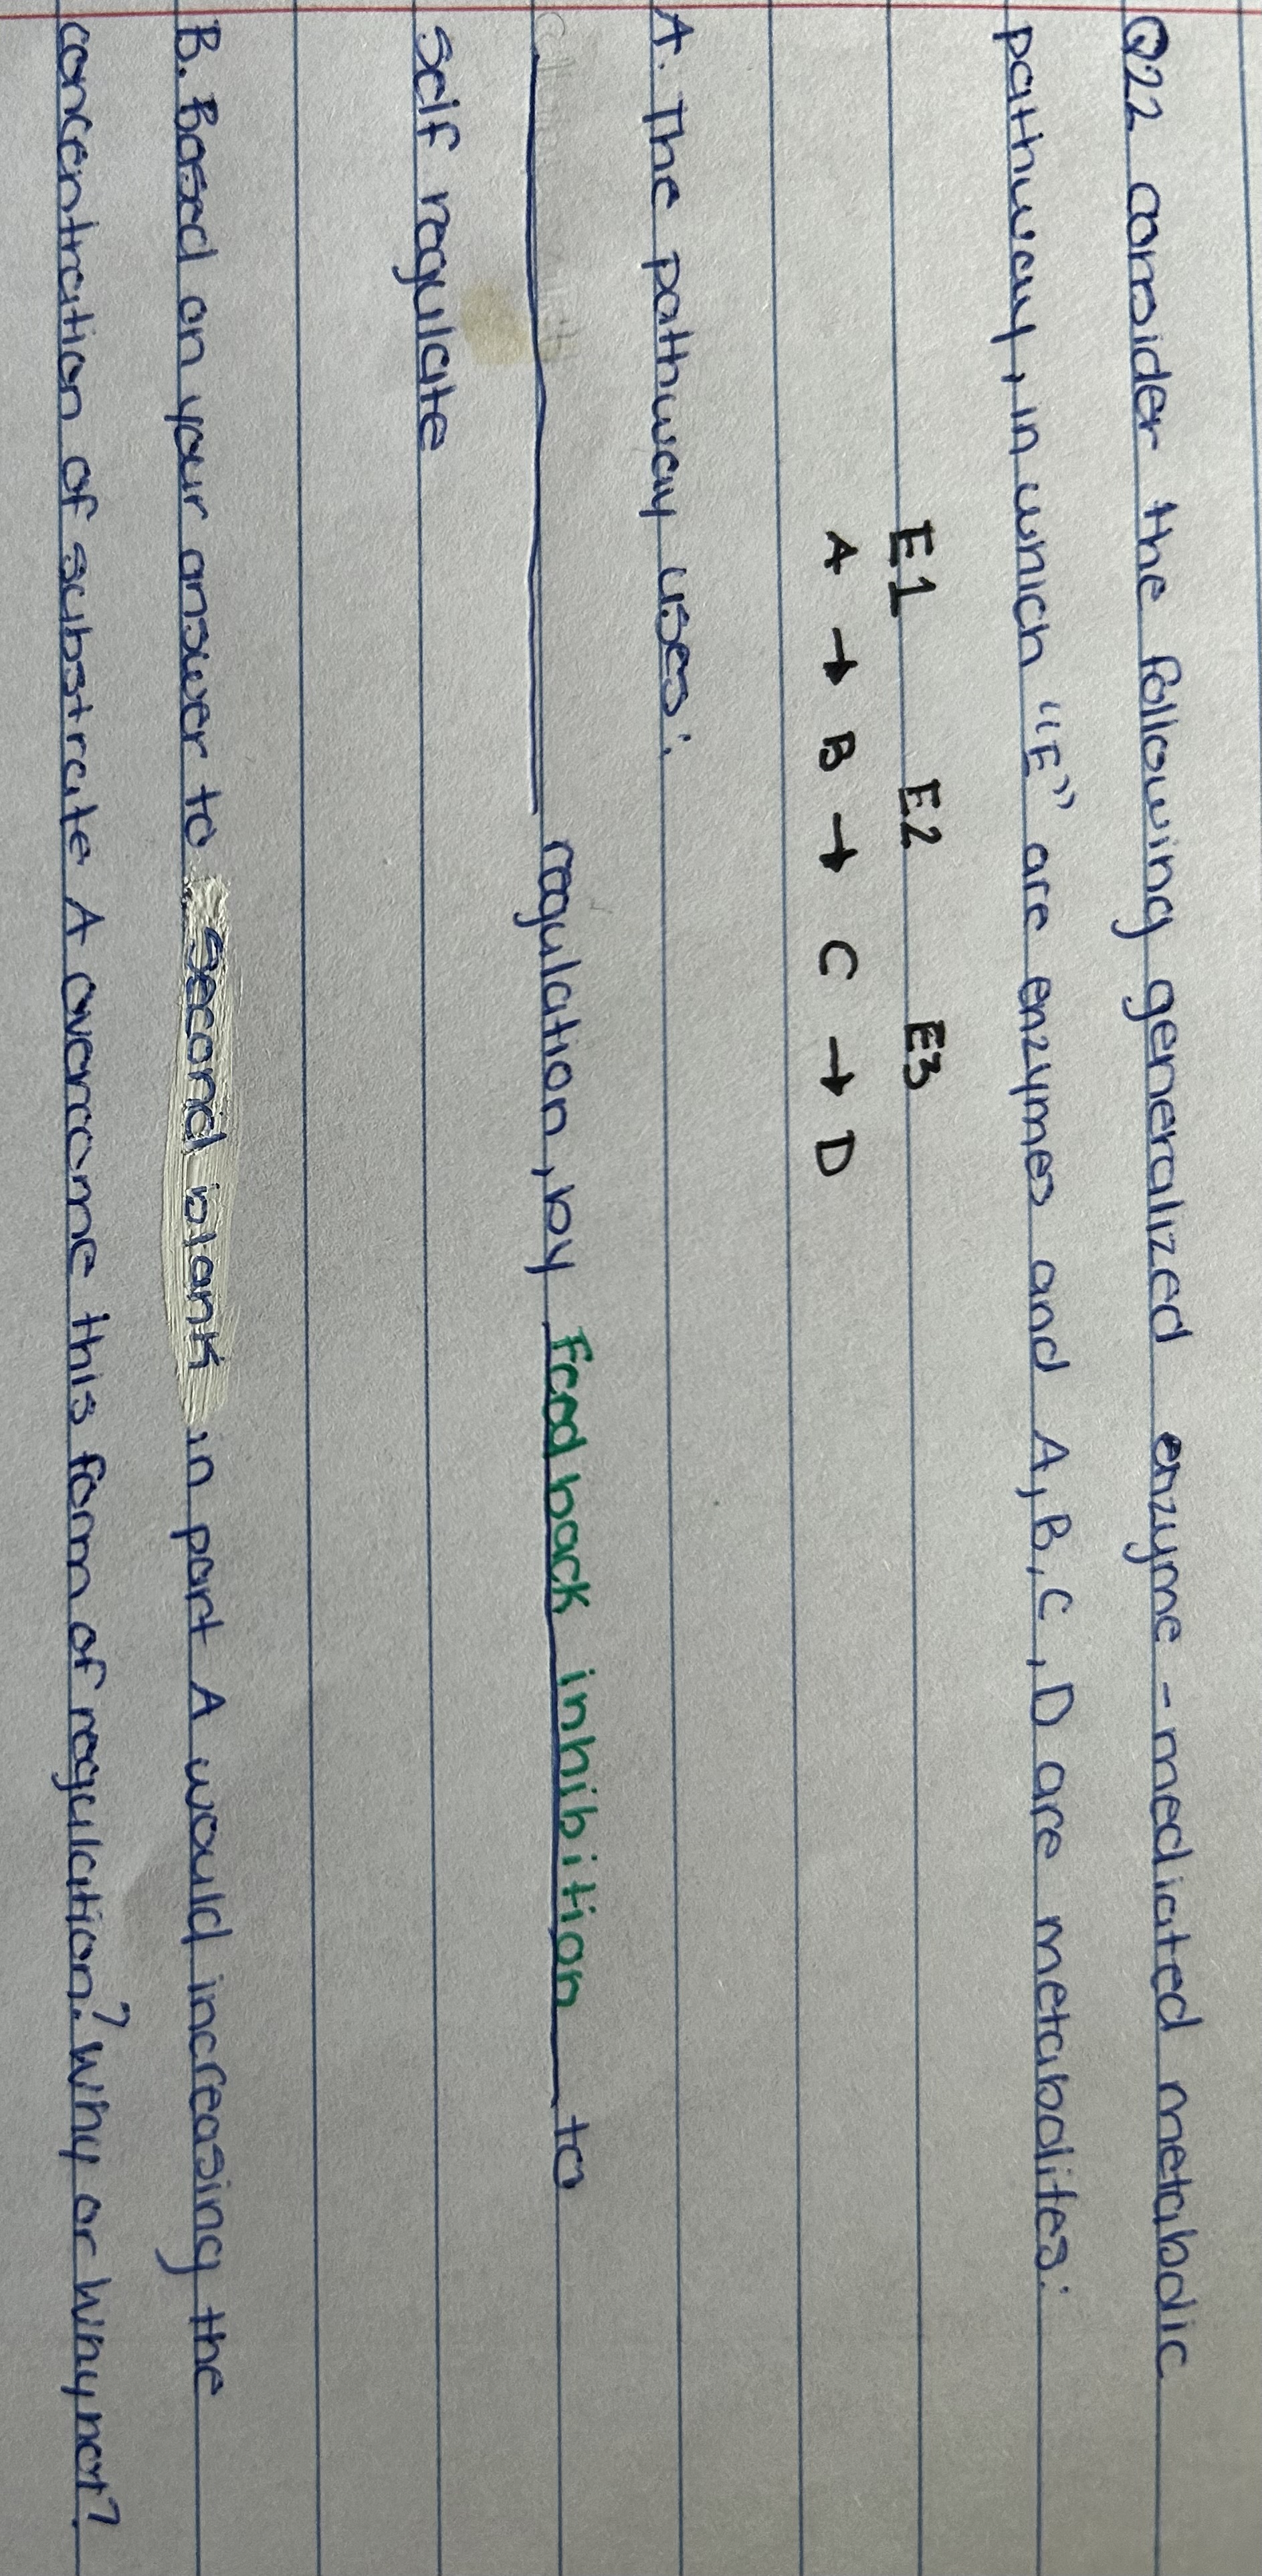 Q22 consider the following generalized enzyme - mediated metabolic
pathway, in which "E" are enzymes and A, B, C, D are metabolites:
E1 E2 E3
A → B → C → D
A. The pathway uses:
regulation, by Feedback inhibition to
self regulate
B. Based on your answer to second blank in part A would increasing the
concentration of substrate A overcome this form of regulation? Why or Why not?